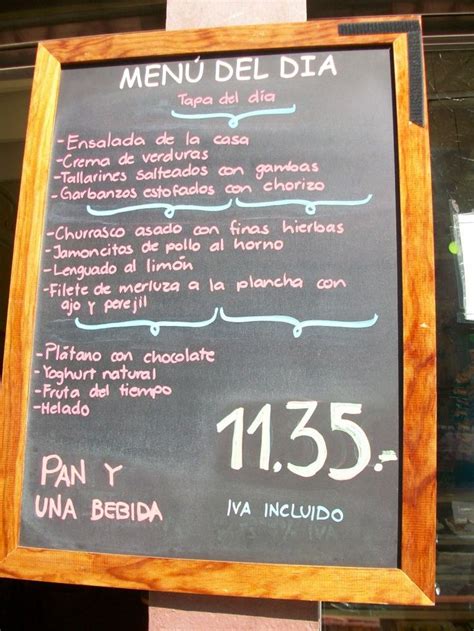 MENÚ DEL DIA
Tapa del día
-Ensalada de la casa
-Crema de verduras
-Tallarines salteados con gambas
-Garbanzos estofados con chorizo
-Churrasco asado con finas hierbas
-Jamoncitas de pollo al horno
-Lenguado al limón
-Filete de merluza a la plancha con
ajo y perejil
-Plátano con chocolate
-Yoghurt natural
-Fruta del tiempo
-Helado
11.35.-
PAN Y
UNA BEBIDA
IVA INCLUIDO